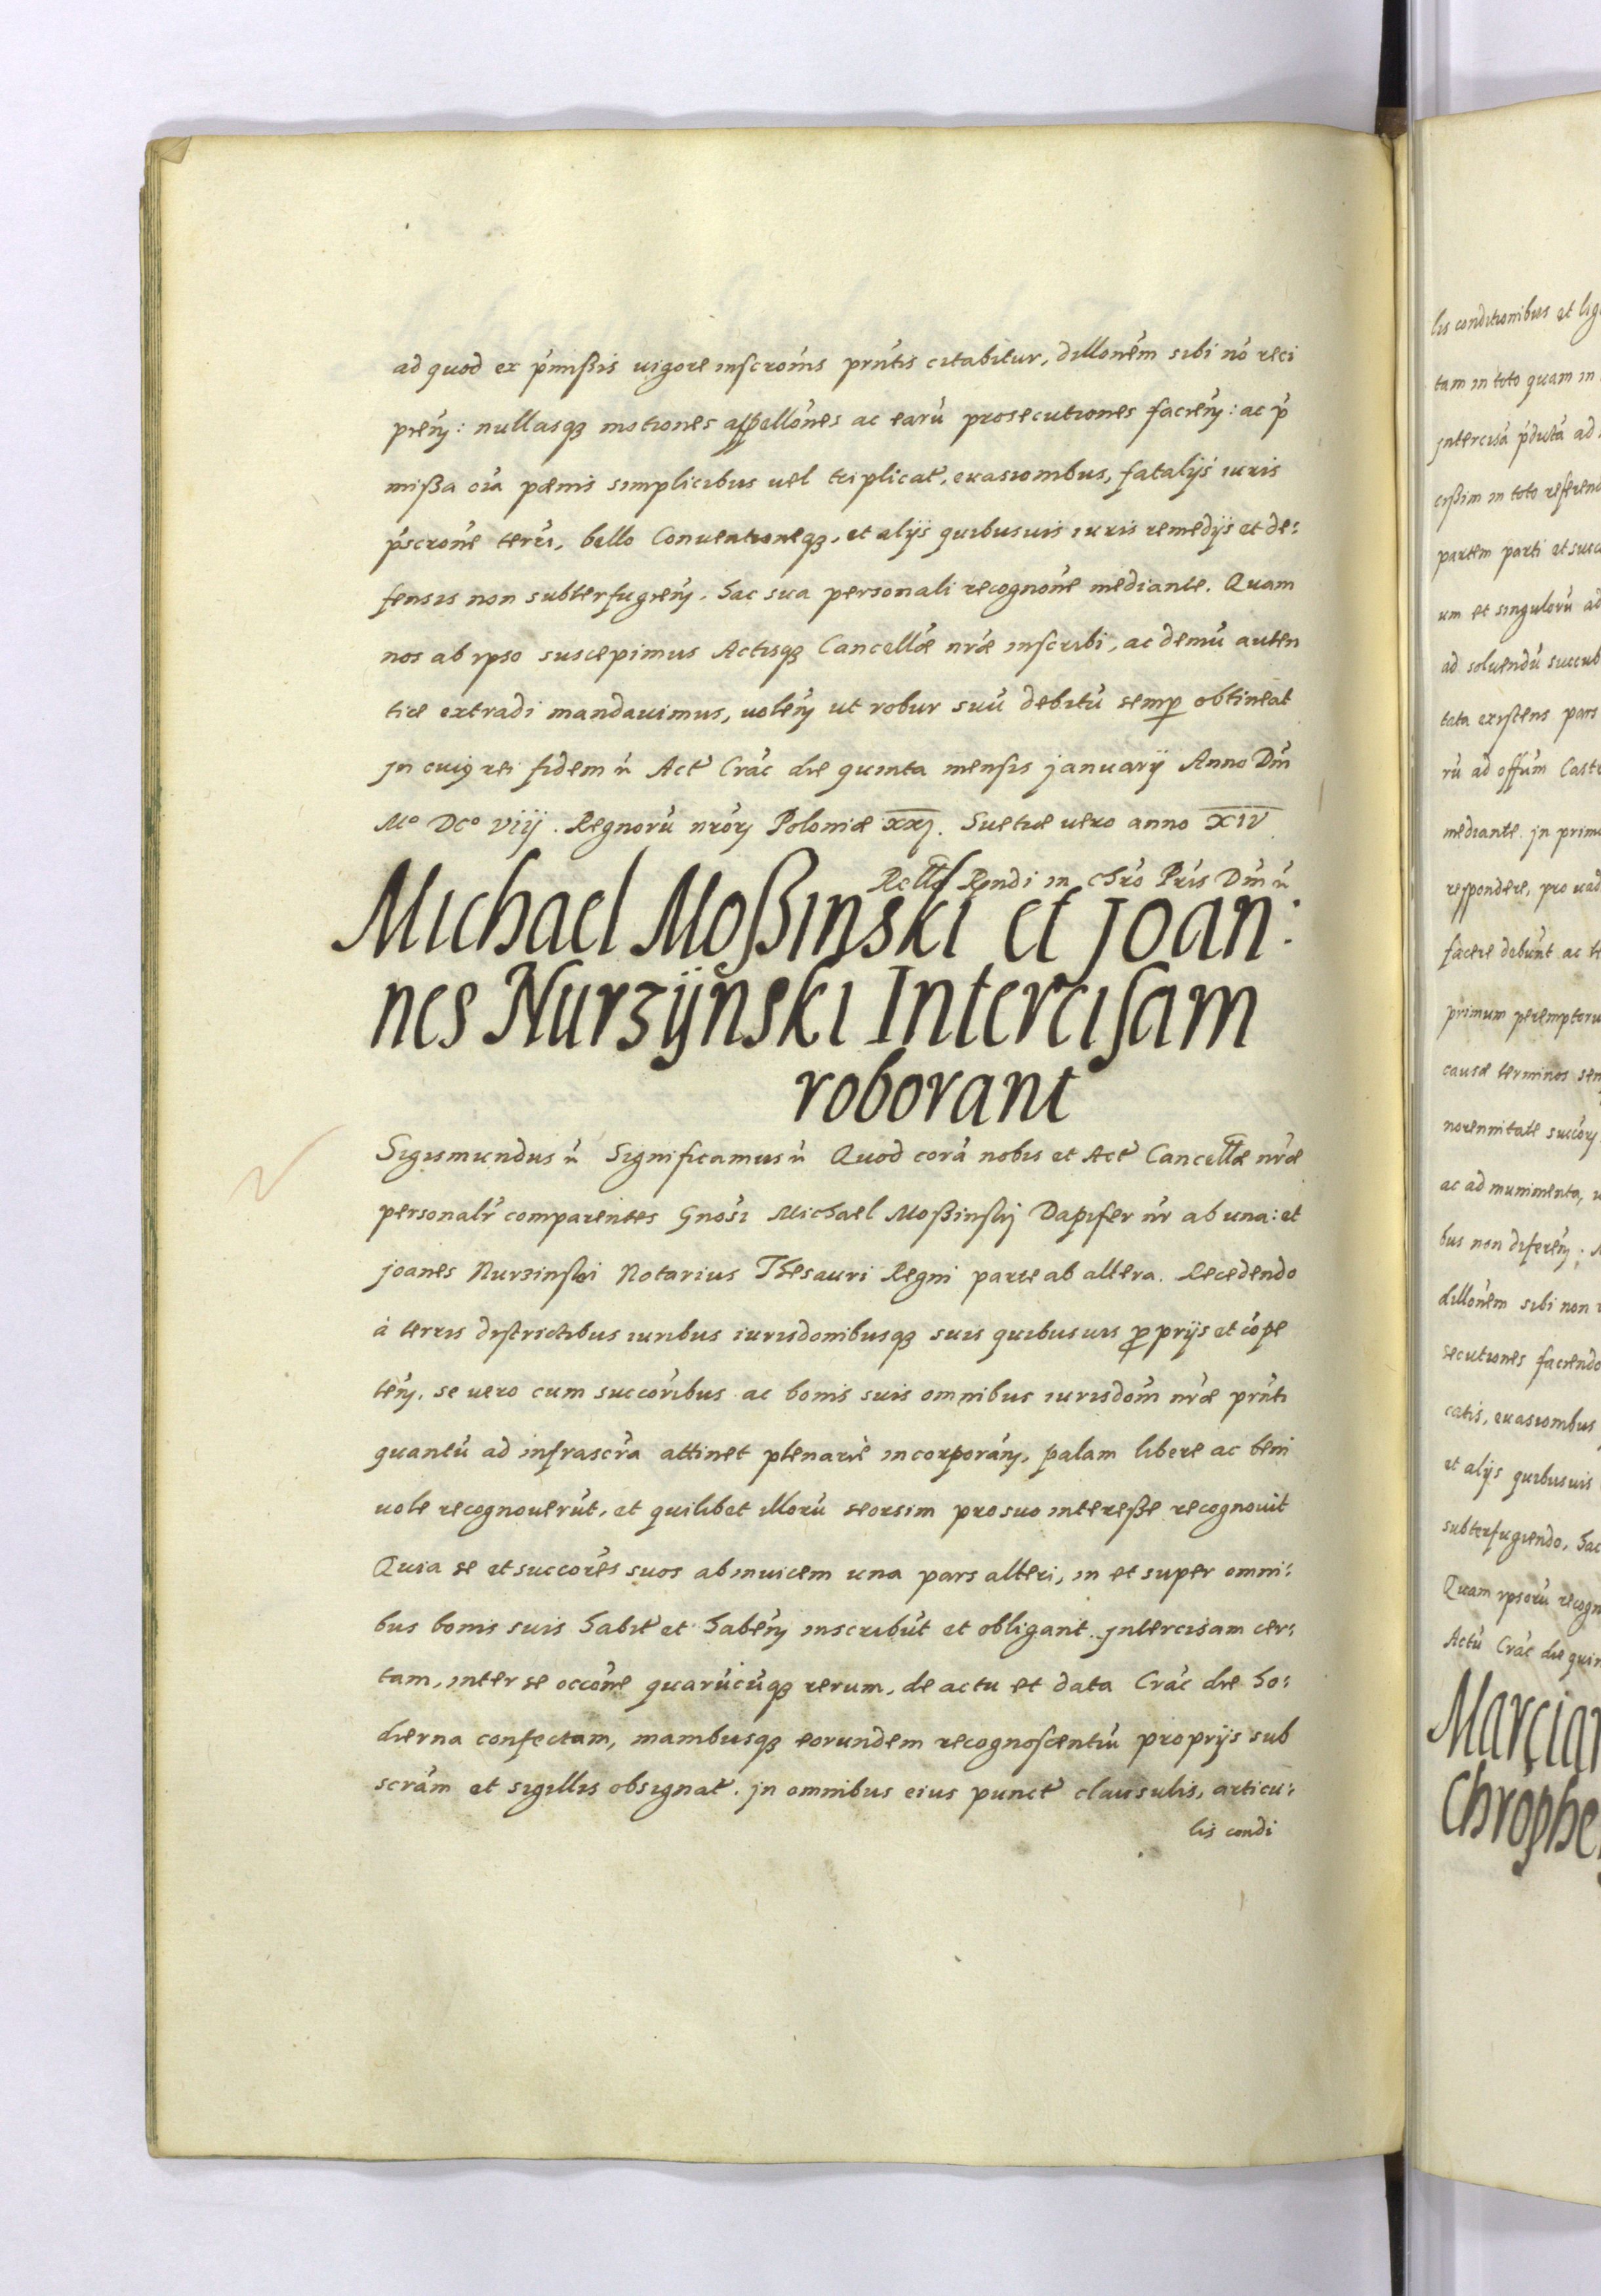 ad quod ex pṁißis uigore inscrońis prńtis citabitur, dillońem sibi nó reci
pień: nullasq3 motiones appellońes ac earú prosecutiones facień: ac ṕ
mißa oía pœnis simplicibus uel triplicať, euasionibus, fatalijs iuris
ṕscrońe terrī, bello Conuentioneq3, et alijs quibusuis iuris remedijs et de:
fensis non subterfugień. hac sua personali recognońe mediante. Quam
nos ab ipso suscepimus Actisq3 Cancellǽ nrǽ inscribi, ac demú auten
tice extradi mandauimus, uoleń ut robur suú debitú semp obtineat
jn cuiꝰ rei fidem ń Act̛ Crác die quinta mensis januarij Anno Dńi
Mº DCº viij. Regnorú nrórꝝ Poloniæ xxj. Suetiæ uero anno xiv
Rello Rendi in chró Pŕis Dńi ń
Michael Moßinski et joan:
nes Nurzÿński Intercisam
roborant
Sigismundus ń Significamus ń Quod corá nobis et Act̛ Cancellæ nrǽ
personalr̛ comparentes Gnośi Michael Moßinskj Dapifer nŕ ab una: et
joanes Nurzinski Notarius Thesauri Regni parte ab altera. Recedendo
à terris districtibus iuribus iurisdonibusq3 suis quibusuis ꝓprijs et cópe
teń, se uero cum succoŕibus ac bonis suis omnibus iurisdońi nrǽ prńti
quantú ad infrascŕa attinet plenariè incorporań, palam libere ac beni
uole recognouerút, et quilibet illorú seorsim pro suo intereße recognouit
Quia se et succoŕes suos ab inuicem una pars alteri, in et super omni:
bus bonis suis habit̛ et habeń inscribút et obligant jntercisam cer:
tam, inter se occońe quarúcúq3 rerum, de actu et data Crác die ho:
dierna confectam, manibusq3 eorundem recognoscentiú proprijs sub
scrám et sigillis obsignat̛. jn omnibus eius punct̛ clausulis, articu:
lis condi
lis conditionibus et lig
tam in toto quam in
jntercisá ṕdictá ad
cißim in toto referend
partem parti et succ
um et singulorú ad
ad soluendú succub
tata existens pars
rú ad offúm Cast
mediante jn prim
respondere, pro uad
facere debúnt ac t
primum peremptoriu
causæ terminos sen
noremnitate succoŕ
ac ad munimenta, u
bus non differeń:
dillońem sibi non r
secutiones faciendo
catis, euasionibus
et alijs quibusuis
subterfugiendo, hac
Quam ipsorú recogn
Actú Crác die quin
Marcian
Chrophe